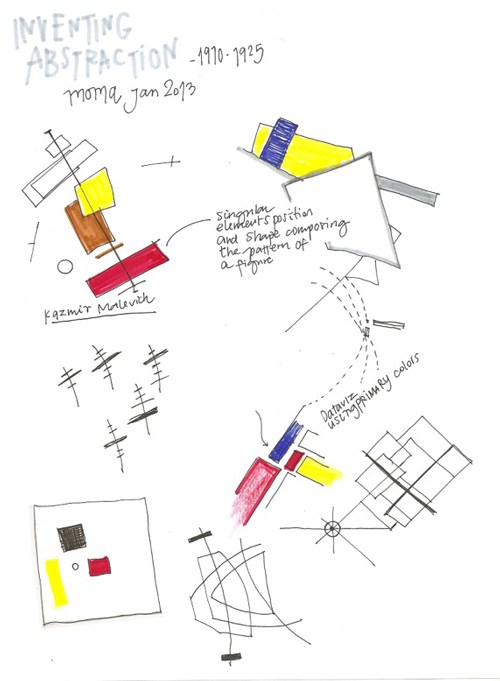 INVENTING
ABSTRACTION -1910-1925
moma, Jan 2013
singular
elements position
and shape composing
the pattern of
a figure
Kazmir Malevich
Dataviz
using PRIMARY colors